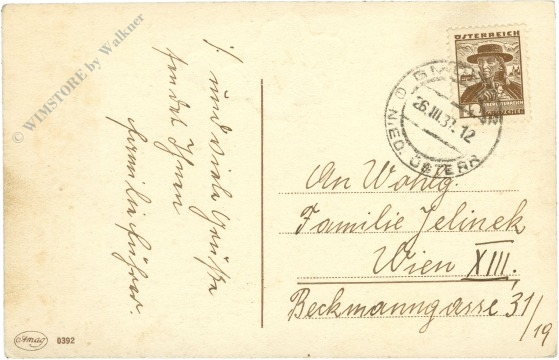 © WIMSTORE by Walkner
und viele Grüße
sendet Ihnen
Familie
ÖSTERREICH
26.III.37.12
NIED. ÖSTERR
An Wohlg.
Familie Jelinek
Wien XIII,
Beckmanngasse 31/19
Amag 0392